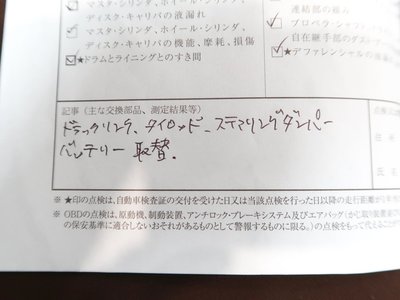 マスタ・シリンダ、ホイール・シリンダ、
ディスク・キャリパの液漏れ
マスタ・シリンダ、ホイール・シリンダ、
ディスク・キャリパの機能、摩耗、損傷
★ドラムとライニングとのすき間
連結部の緩み
プロペラ・シャフト
自在継手部のダスト
★デファレンシャルの
記事（主な交換部品、測定結果等）
ドラッグリンク、タイロッド、ステアリングダンパー
バッテリー 取替.
点検
住
氏名
※★印の点検は、自動車検査証の交付を受けた日又は当該点検を行った日以降の走行距離が
※ OBDの点検は、原動機、制動装置、アンチロック・ブレーキシステム及びエアバッグ（かじ取り装置
の保安基準に適合しないおそれがあるものとして警報するものに限る。）の点検をもって代えること